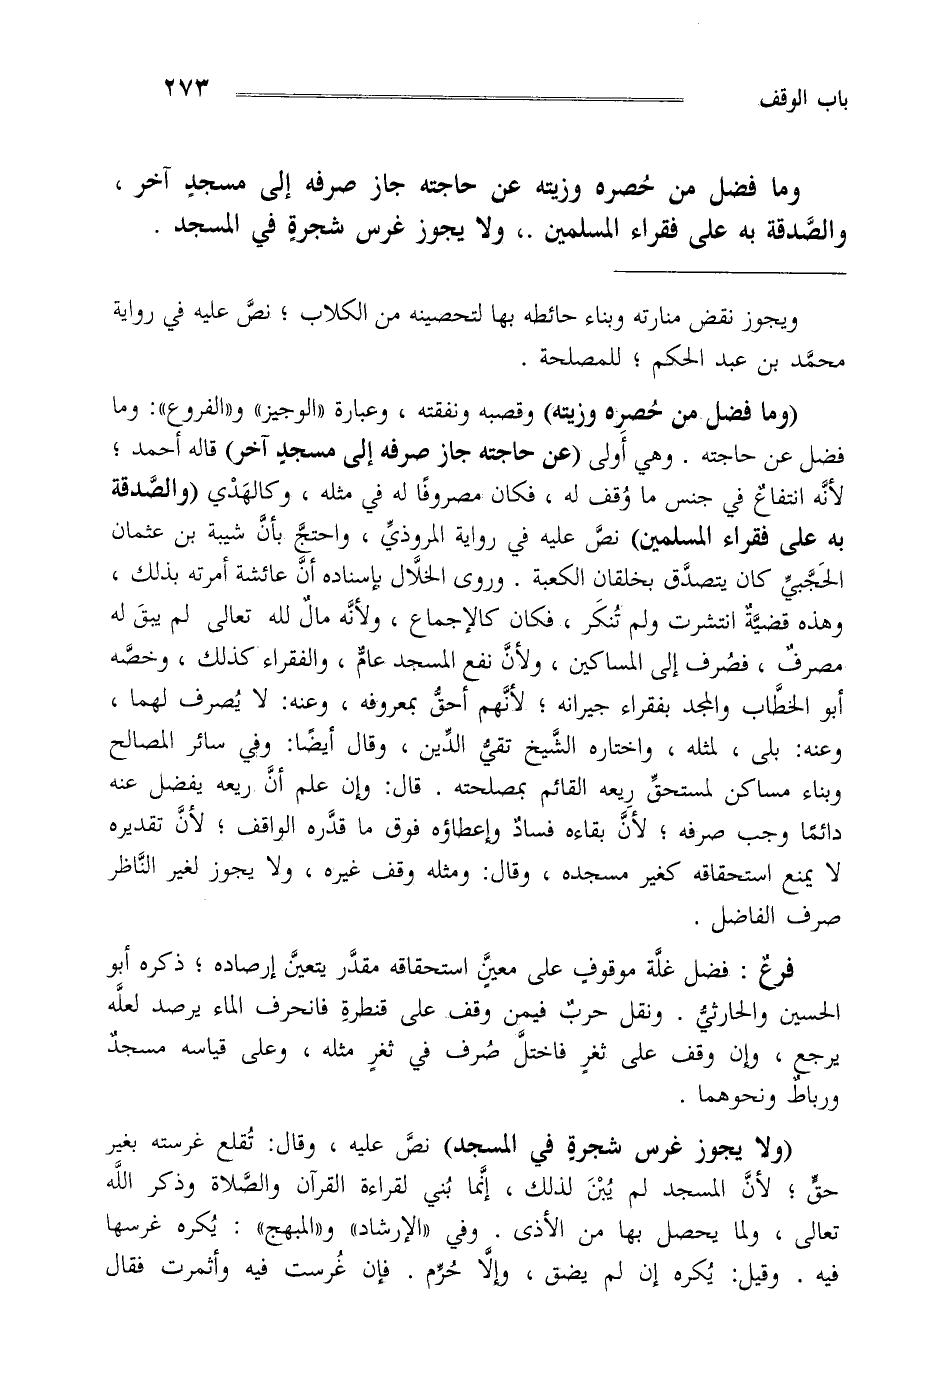 باب الوقف ٢٧٣
وما فضل من حُصره وزيته عن حاجته جاز صرفه إلى مسجدٍ آخر ،
والصَّدقة به على فقراء المسلمين .، ولا يجوز غرس شجرةٍ في المسجد .
ويجوز نقض منارته وبناء حائطه بها لتحصينه من الكلاب ؛ نصَّ عليه في رواية
محمَّد بن عبد الحكم ؛ للمصلحة .
(وما فضل من حُصرِه وزيته) وقصبه ونفقته ، وعبارة «الوجيز» و«الفروع»: وما
فضل عن حاجته . وهي أَولى (عن حاجته جاز صرفه إلى مسجدٍ آخر) قاله أحمد ؛
لأنَّه انتفاعٌ في جنس ما وُقف له ، فكان مصروفًا له في مثله ، وكالهَدْي (والصَّدقة
به على فقراء المسلمين) نصَّ عليه في رواية المروذيِّ ، واحتجَّ بأنَّ شيبة بن عثمان
الحَجَبيِّ كان يتصدَّق بخلقان الكعبة . وروى الخلَّال بإسناده أنَّ عائشة أمرته بذلك ،
وهذه قضيَّةٌ انتشرت ولم تُنكَر ، فكان كالإجماع ، ولأنَّه مالٌ لله تعالى لم يبقَ له
مصرفٌ ، فصُرف إلى المساكين ، ولأنَّ نفع المسجد عامٌّ ، والفقراء كذلك ، وخصَّه
أبو الخطَّاب والمجد بفقراء جيرانه ؛ لأنَّهم أحقُّ بمعروفه ، وعنه: لا يُصرف لهما ،
وعنه: بلى ، لمثله ، واختاره الشَّيخ تقيُّ الدِّين ، وقال أيضًا: وفي سائر المصالح
وبناء مساكن لمستحقِّ رِيعه القائم بمصلحته . قال: وإن علم أنَّ ريعه يفضل عنه
دائمًا وجب صرفه ؛ لأنَّ بقاءه فسادٌ وإعطاؤه فوق ما قدَّره الواقف ؛ لأنَّ تقديره
لا يمنع استحقاقه كغير مسجده ، وقال: ومثله وقف غيره ، ولا يجوز لغير النَّاظر
صرف الفاضل .
فرعٌ : فضل غلَّة موقوفٍ على معينٍّ استحقاقه مقدَّر يتعينَّ إرصاده ؛ ذكره أبو
الحسين والحارثيُّ . ونقل حربٌ فيمن وقف على قنطرةٍ فانحرف الماء يرصد لعلَّه
يرجع ، وإن وقف على ثغرٍ فاختلَّ صُرف في ثغرٍ مثله ، وعلى قياسه مسجدٌ
ورباطٌ ونحوهما .
(ولا يجوز غرس شجرةٍ في المسجد) نصَّ عليه ، وقال: تُقلع غرسته بغير
حقٍّ ؛ لأنَّ المسجد لم يُبْنَ لذلك ، إنَّما بُني لقراءة القرآن والصَّلاة وذكر اللَّه
تعالى ، ولما يحصل بها من الأذى . وفي «الإرشاد» و«المبهج» : يُكره غرسها
فيه . وقيل: يُكره إن لم يضق ، وإلَّا حُرِّم . فإن غُرست فيه وأثمرت فقال